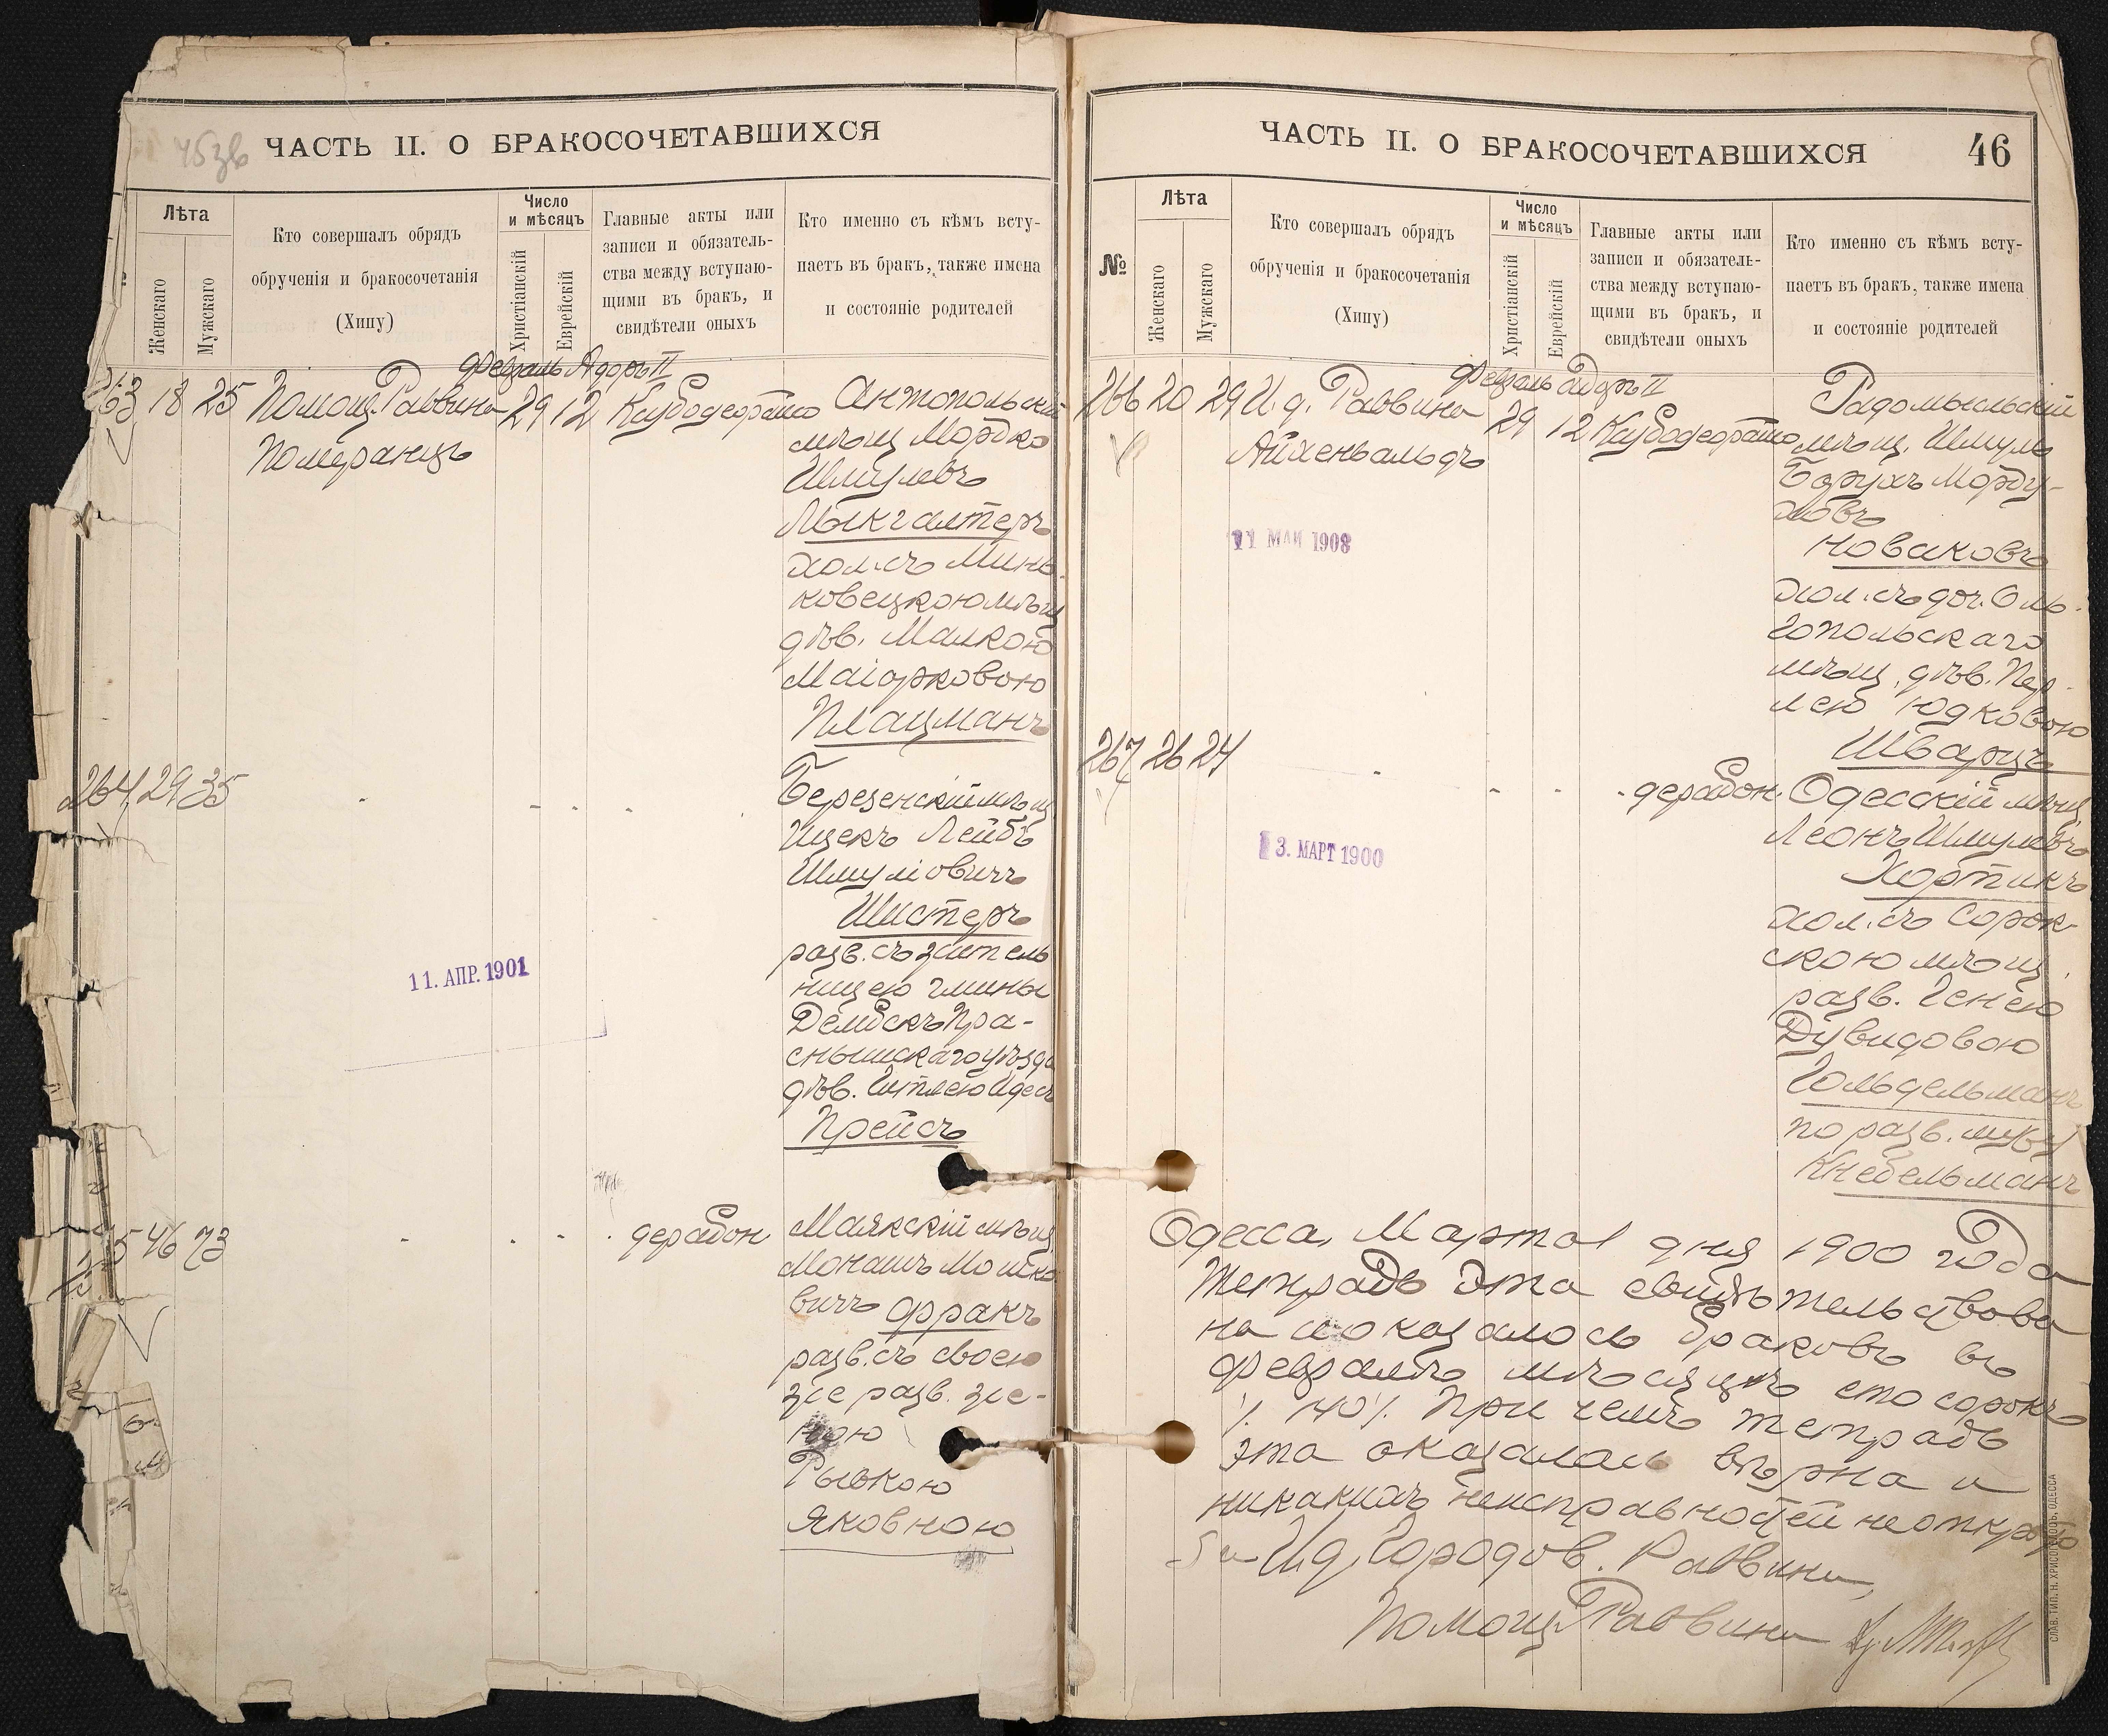 45 зв
ЧАСТЬ II. О БРАКОСОЧЕТАВШИХСЯ
Лѣта
Женскаго
Мужскаго
Кто совершалъ обрядъ
обрученія и бракосочетанія
(Хипу)
Число
и мѣсяцъ
Христіанскій
Еврейскій
Главные акты или
записи и обязатель-
ства между вступаю-
щими въ бракъ, и
свидѣтели оныхъ
Кто именно съ кѣмъ всту-
паетъ въ бракъ, также имена
и состояніе родителей
Февраль Адоръ II
263 18 25 Помощ. Раввина 29 12 Кисбодеорато Антопольскій
Померанцъ
мѣщ Мордко
Шмулевъ
Лыкгалтеръ
хол. съ Минь-
ковецкою мѣщ
дѣв. Малкою
Маіорковою
Плацманъ
264 29 35
Березенскій мѣщ
Ицекъ Лейбъ
Шмуліовичъ
Шистеръ
разв. съ житель
ницею гмины
Дембскъ Пра-
снышскаго уѣзда
дѣв. Гитлею Идесъ
Прейсъ
11. АПР. 1901
265 46 73
дерабон
Маякскій мѣщ
Монашъ Мошко
вичъ Фракъ
разв. съ своею
же разв. же-
ною
Рывкою
Яковною
ЧАСТЬ II. О БРАКОСОЧЕТАВШИХСЯ
46
№
Лѣта
Женскаго
Мужскаго
Кто совершалъ обрядъ
обрученія и бракосочетанія
(Хипу)
Число
и мѣсяцъ
Христіанскій
Еврейскій
Главные акты или
записи и обязатель-
ства между вступаю-
щими въ бракъ, и
свидѣтели оныхъ
Кто именно съ кѣмъ всту-
паетъ въ бракъ, также имена
и состояніе родителей
Февраль Адоръ II
266 20 29 И. д. Раввина 29 12 Кисбодеорато Радомысльскій
Айхенвальдъ
мѣщ. Шмуль
Борухъ Морду-
ховъ
Новаковъ
хол. съ доч. Оль-
гопольскаго
мѣщ. дѣв. Пер-
лею Юдковою
Шварцъ
11 МАИ 1908
267 26 24
дерабон. Одесскій мѣщ
Леонъ Шмулевъ
Хортикъ
хол. съ Сорок-
скою мѣщ.
разв. Генею
Дувидовою
Гольдельманъ
по разв. мужу
Кнебельманъ
13. МАРТ 1900
Одесса, Марта 1 дня 1900 года
Тетрадь эта свидѣтельствова
на и оказалось браковъ въ
февралѣ мѣсяцѣ сто сорокъ
/. 140 /. При чемъ тетрадь
эта оказалась вѣрна и
никакихъ неисправностей не открыто
За И. д. Городов. Раввина,
Помощ. Раввина
СЛАВ. ТИП. Н. ХРИСОГЕЛОСЪ, ОДЕССА